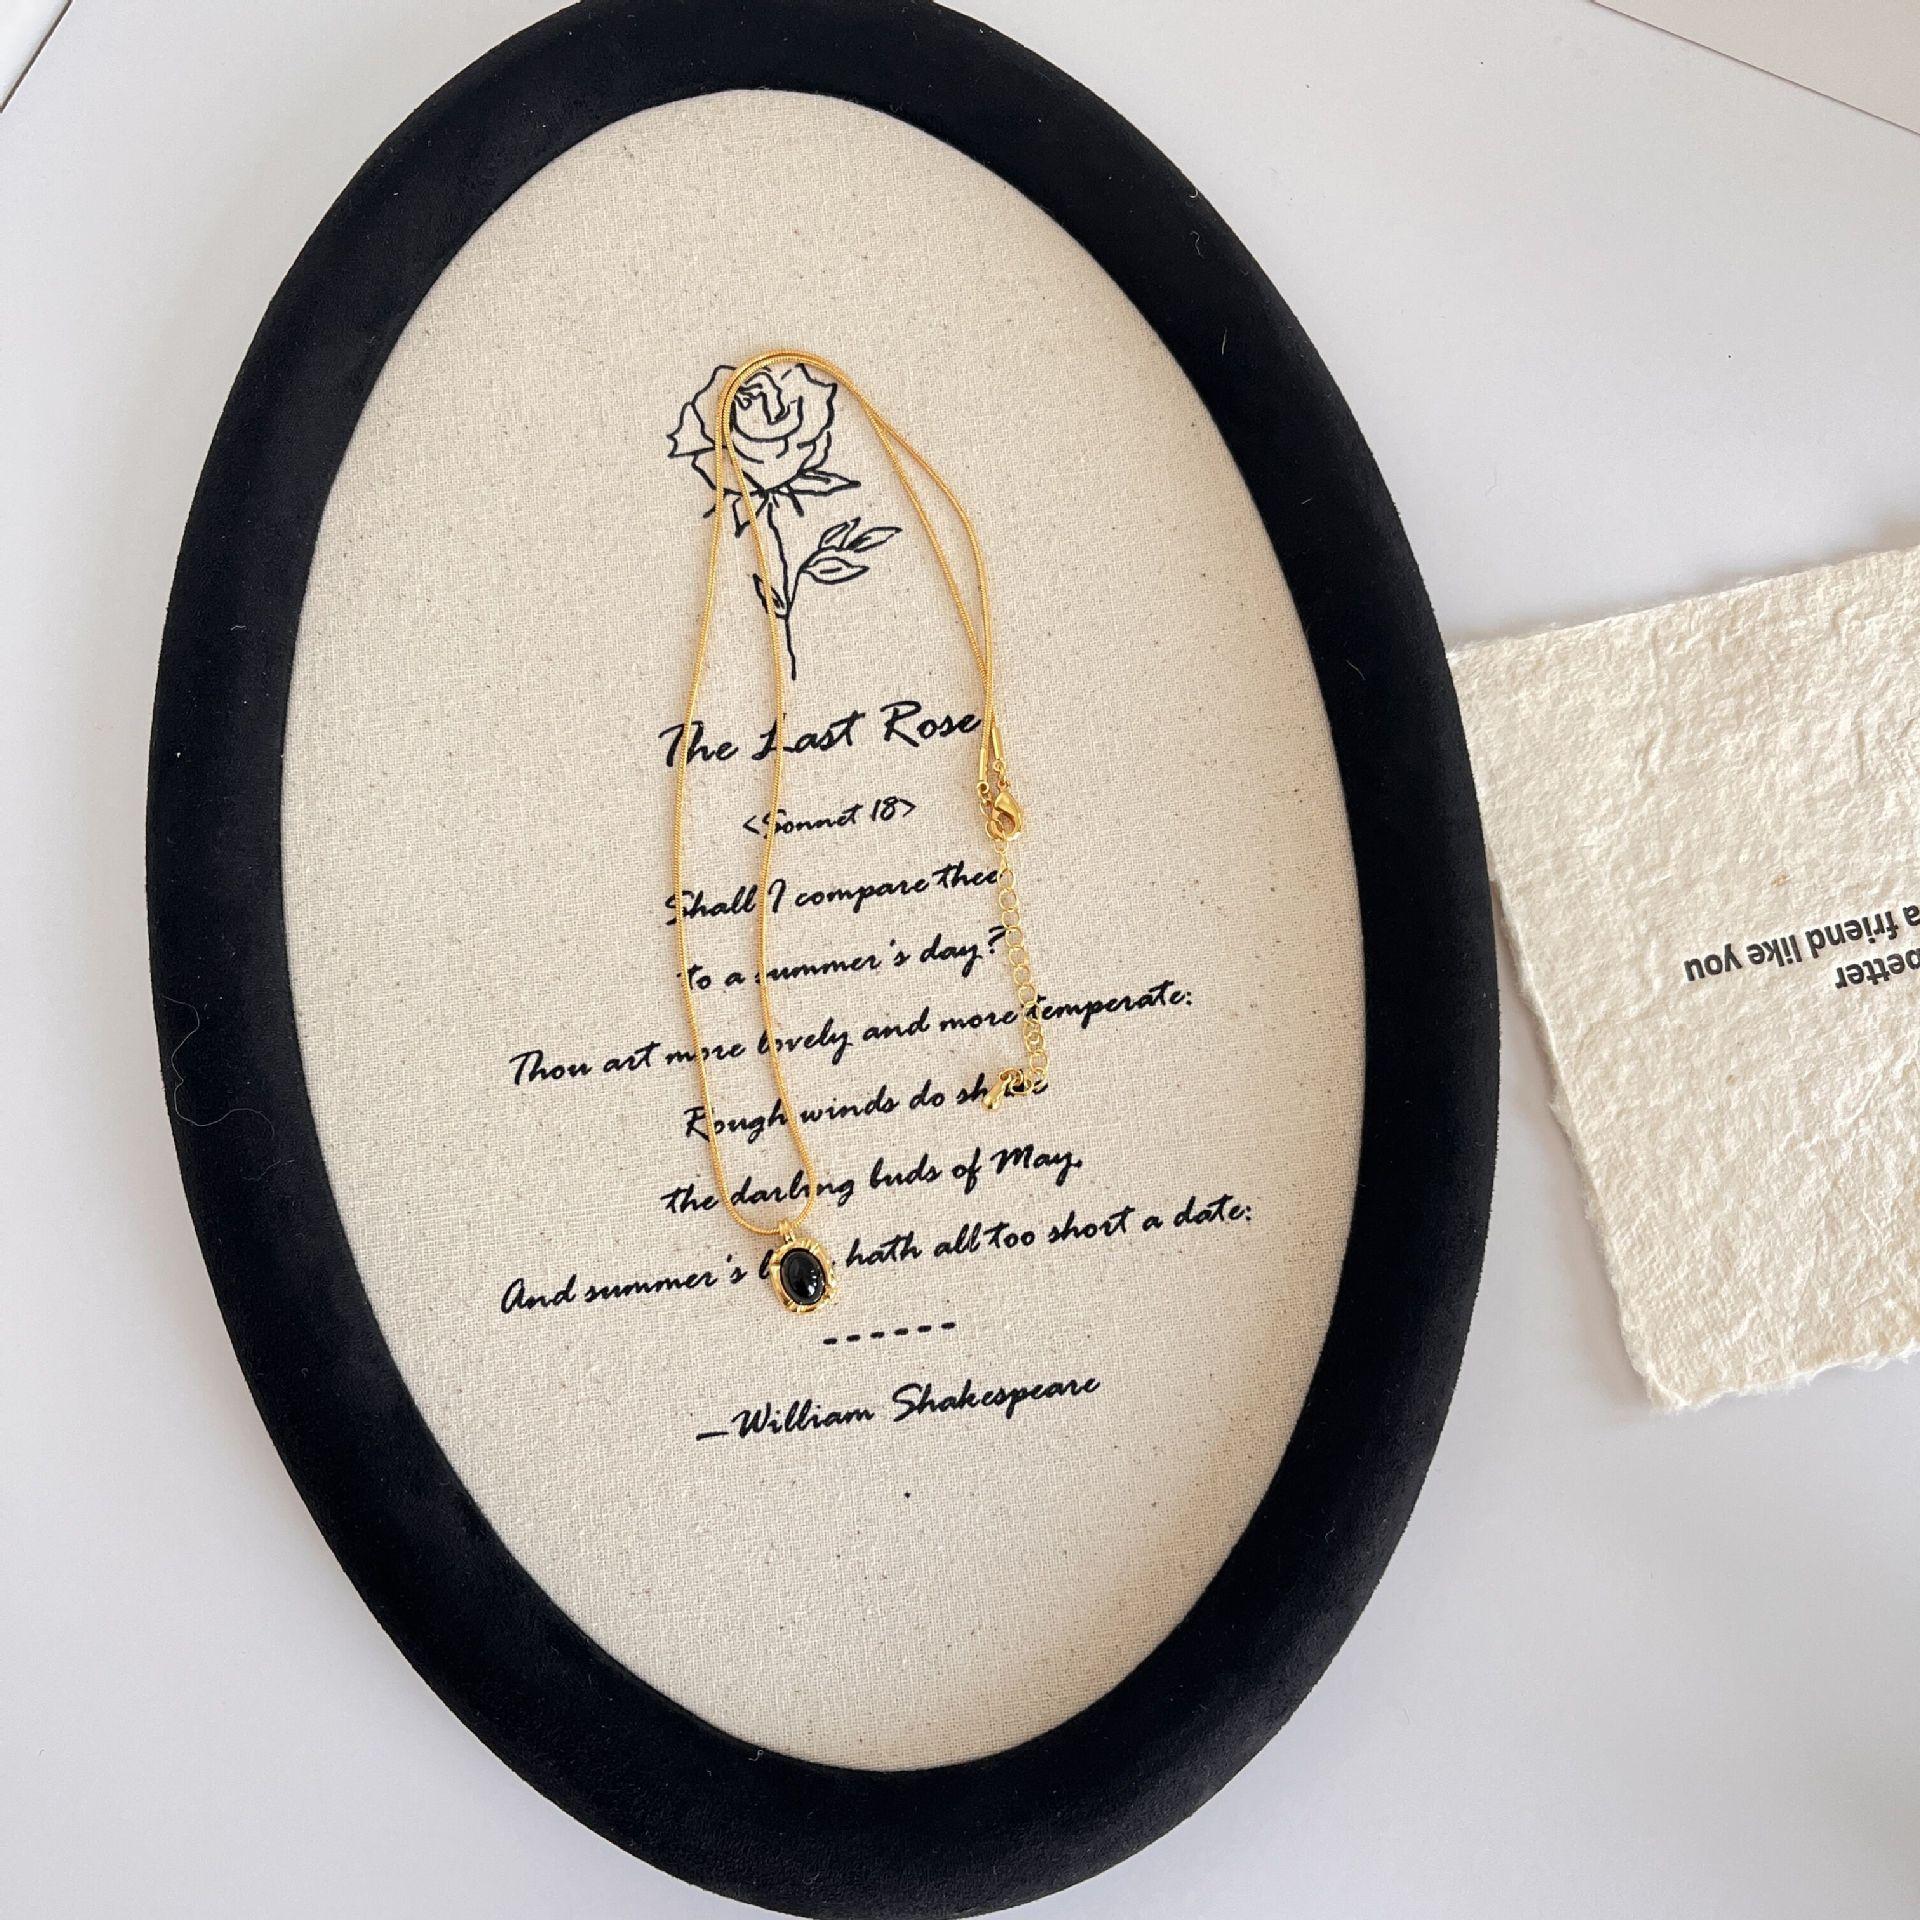 The Last Rose
<Sonnet 18>
Shall I compare thee
to a summer's day?
Thou art more lovely and more temperate:
Rough winds do
the darling buds of May,
And summer's hath all too short a date:
------
—William Shakespeare
a friend like you
better